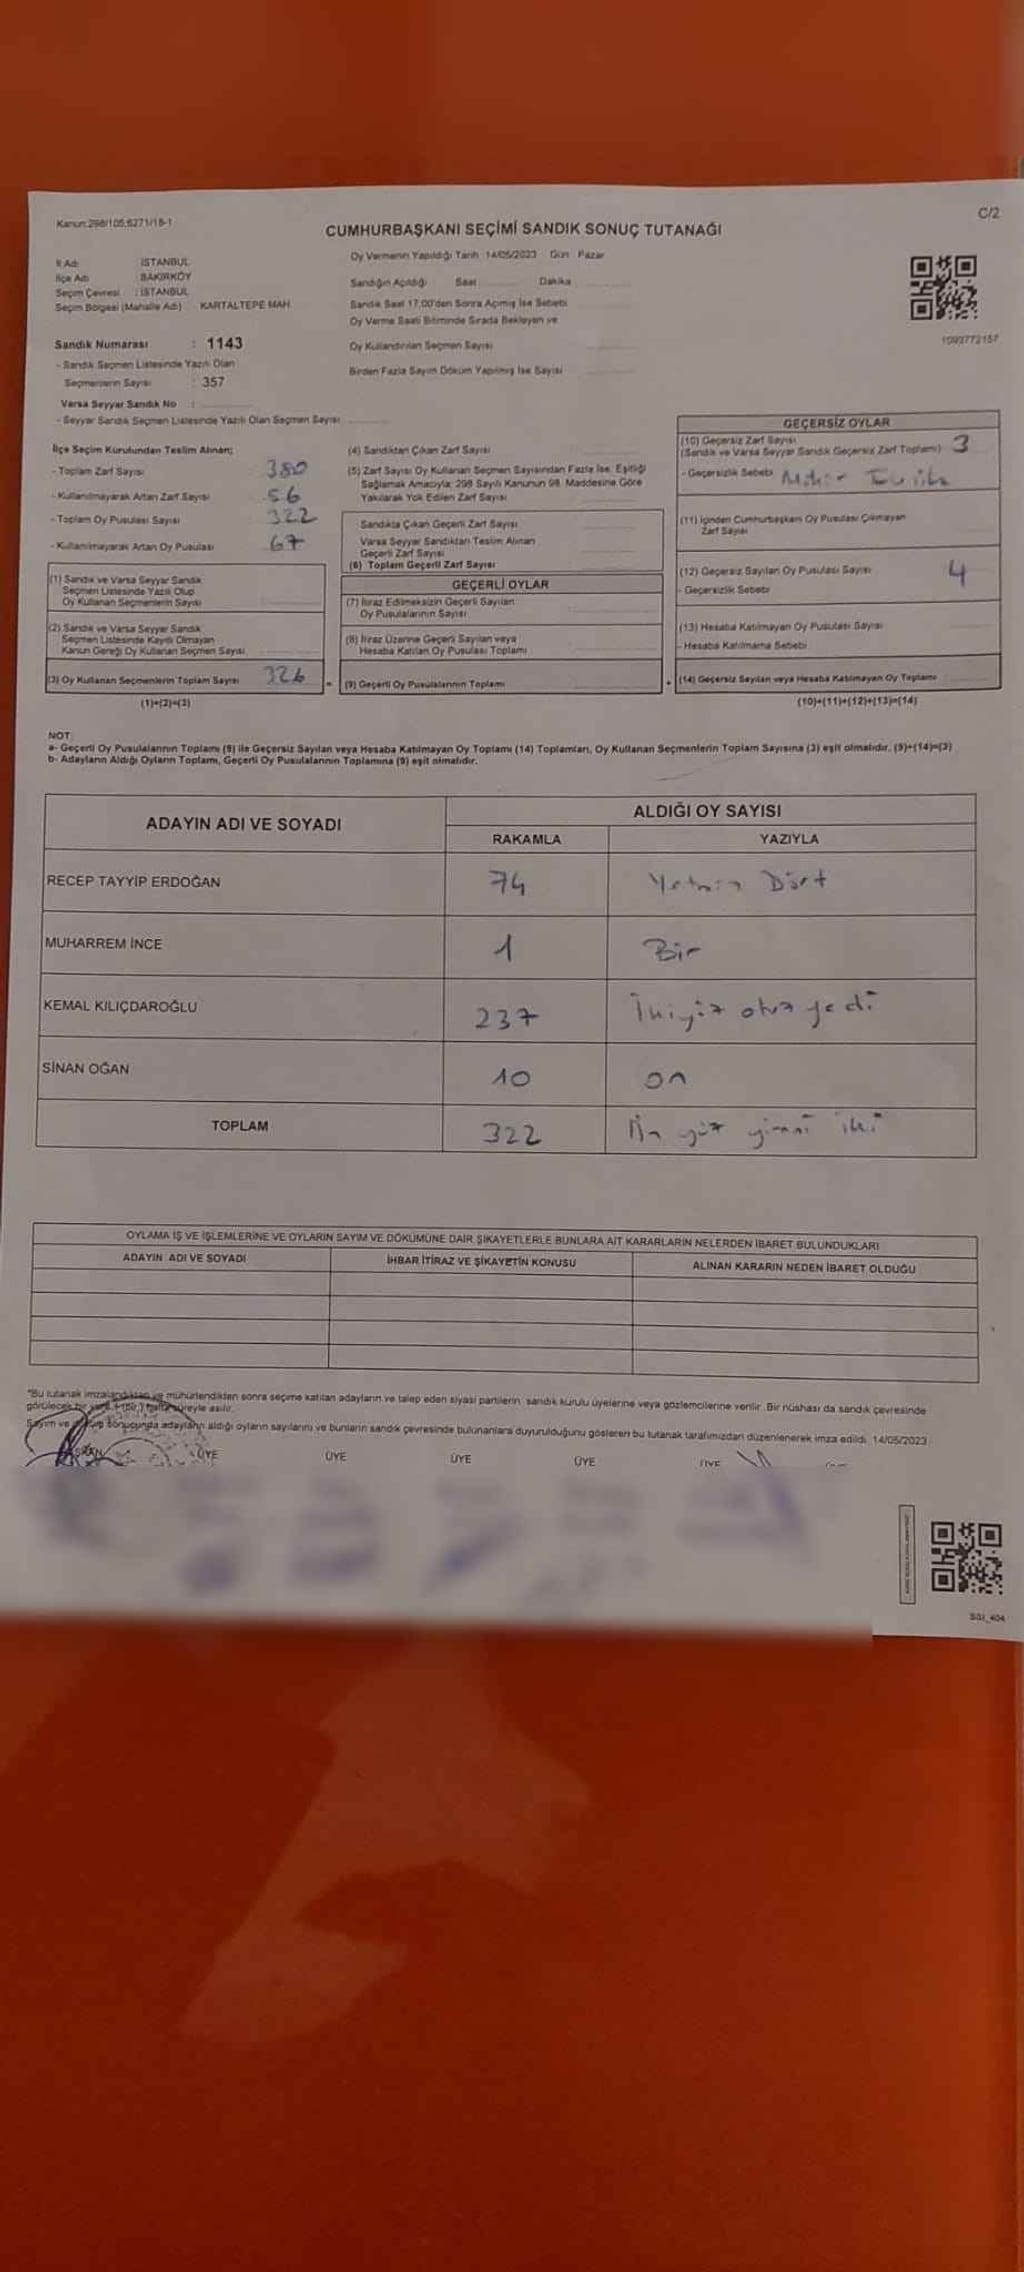 Kanun:298/105;6271/18-1
C/2
CUMHURBAŞKANI SEÇİMİ SANDIK SONUÇ TUTANAĞI
İl Adı : İSTANBUL
İlçe Adı : BAKIRKÖY
Seçim Çevresi : İSTANBUL
Seçim Bölgesi (Mahalle Adı) KARTALTEPE MAH
Sandık Numarası : 1143
- Sandık Seçmen Listesinde Yazılı Olan
Seçmenlerin Sayısı : 357
Varsa Seyyar Sandık No :
- Seyyar Sandık Seçmen Listesinde Yazılı Olan Seçmen Sayısı
Oy Vermenin Yapıldığı Tarih 14/05/2023 Gün Pazar
Sandığın Açıldığı Saat Dakika
Sandık Saat 17:00'den Sonra Açılmış İse Sebebi
Oy Verme Saati Bitiminde Sırada Bekleyen ve
Oy Kullandırılan Seçmen Sayısı
Birden Fazla Sayım Döküm Yapılmış İse Sayısı
1093772157
İlçe Seçim Kurulundan Teslim Alınan;
- Toplam Zarf Sayısı 380
- Kullanılmayarak Artan Zarf Sayısı 56
- Toplam Oy Pusulası Sayısı 322
- Kullanılmayarak Artan Oy Pusulası 67
(1) Sandık ve Varsa Seyyar Sandık
Seçmen Listesinde Yazılı Olup
Oy Kullanan Seçmenlerin Sayısı
(2) Sandık ve Varsa Seyyar Sandık
Seçmen Listesinde Kayıtlı Olmayan
Kanun Gereği Oy Kullanan Seçmen Sayısı
(3) Oy Kullanan Seçmenlerin Toplam Sayısı 326
(1)+(2)=(3)
(4) Sandıktan Çıkan Zarf Sayısı
(5) Zarf Sayısı Oy Kullanan Seçmen Sayısından Fazla İse, Eşitliği
Sağlamak Amacıyla; 298 Sayılı Kanunun 98. Maddesine Göre
Yakılarak Yok Edilen Zarf Sayısı
Sandıkta Çıkan Geçerli Zarf Sayısı
Varsa Seyyar Sandıktan Teslim Alınan
Geçerli Zarf Sayısı
(6) Toplam Geçerli Zarf Sayısı
GEÇERLİ OYLAR
(7) İtiraz Edilmeksizin Geçerli Sayılan
Oy Pusulalarının Sayısı
(8) İtiraz Üzerine Geçerli Sayılan veya
Hesaba Katılan Oy Pusulası Toplamı
= (9) Geçerli Oy Pusulalarının Toplamı
GEÇERSİZ OYLAR
(10) Geçersiz Zarf Sayısı
(Sandık ve Varsa Seyyar Sandık Geçersiz Zarf Toplamı) 3
- Geçersizlik Sebebi
(11) İçinden Cumhurbaşkanı Oy Pusulası Çıkmayan
Zarf Sayısı
(12) Geçersiz Sayılan Oy Pusulası Sayısı 4
- Geçersizlik Sebebi
(13) Hesaba Katılmayan Oy Pusulası Sayısı
- Hesaba Katılmama Sebebi
+ (14) Geçersiz Sayılan veya Hesaba Katılmayan Oy Toplamı
(10)+(11)+(12)+(13)=(14)
NOT:
a- Geçerli Oy Pusulalarının Toplamı (9) ile Geçersiz Sayılan veya Hesaba Katılmayan Oy Toplamı (14) Toplamları, Oy Kullanan Seçmenlerin Toplam Sayısına (3) eşit olmalıdır. (9)+(14)=(3)
b- Adayların Aldığı Oyların Toplamı, Geçerli Oy Pusulalarının Toplamına (9) eşit olmalıdır.
ADAYIN ADI VE SOYADI ALDIĞI OY SAYISI
RAKAMLA YAZIYLA
RECEP TAYYİP ERDOĞAN 74 Yetmiş Dört
MUHARREM İNCE 1 Bir
KEMAL KILIÇDAROĞLU 237 İkiyüz otuz yedi
SİNAN OĞAN 10 on
TOPLAM 322 Üç yüz yirmi iki
OYLAMA İŞ VE İŞLEMLERİNE VE OYLARIN SAYIM VE DÖKÜMÜNE DAİR ŞİKAYETLERLE BUNLARA AİT KARARLARIN NELERDEN İBARET BULUNDUKLARI
ADAYIN ADI VE SOYADI İHBAR İTİRAZ VE ŞİKAYETİN KONUSU ALINAN KARARIN NEDEN İBARET OLDUĞU
*Bu tutanak imzalandıktan ve mühürlendikten sonra seçime katılan adayların ve talep eden siyasi partilerin sandık kurulu üyelerine veya gözlemcilerine verilir. Bir nüshası da sandık çevresinde
görülecek bir yere 1 (bir) hafta süreyle asılır.
Sayım ve döküm sonucunda adayların aldığı oyların sayılarını ve bunların sandık çevresinde bulunanlara duyurulduğunu gösteren bu tutanak tarafımızdan düzenlenerek imza edildi. 14/05/2023
ÜYE ÜYE ÜYE ÜYE ÜYE